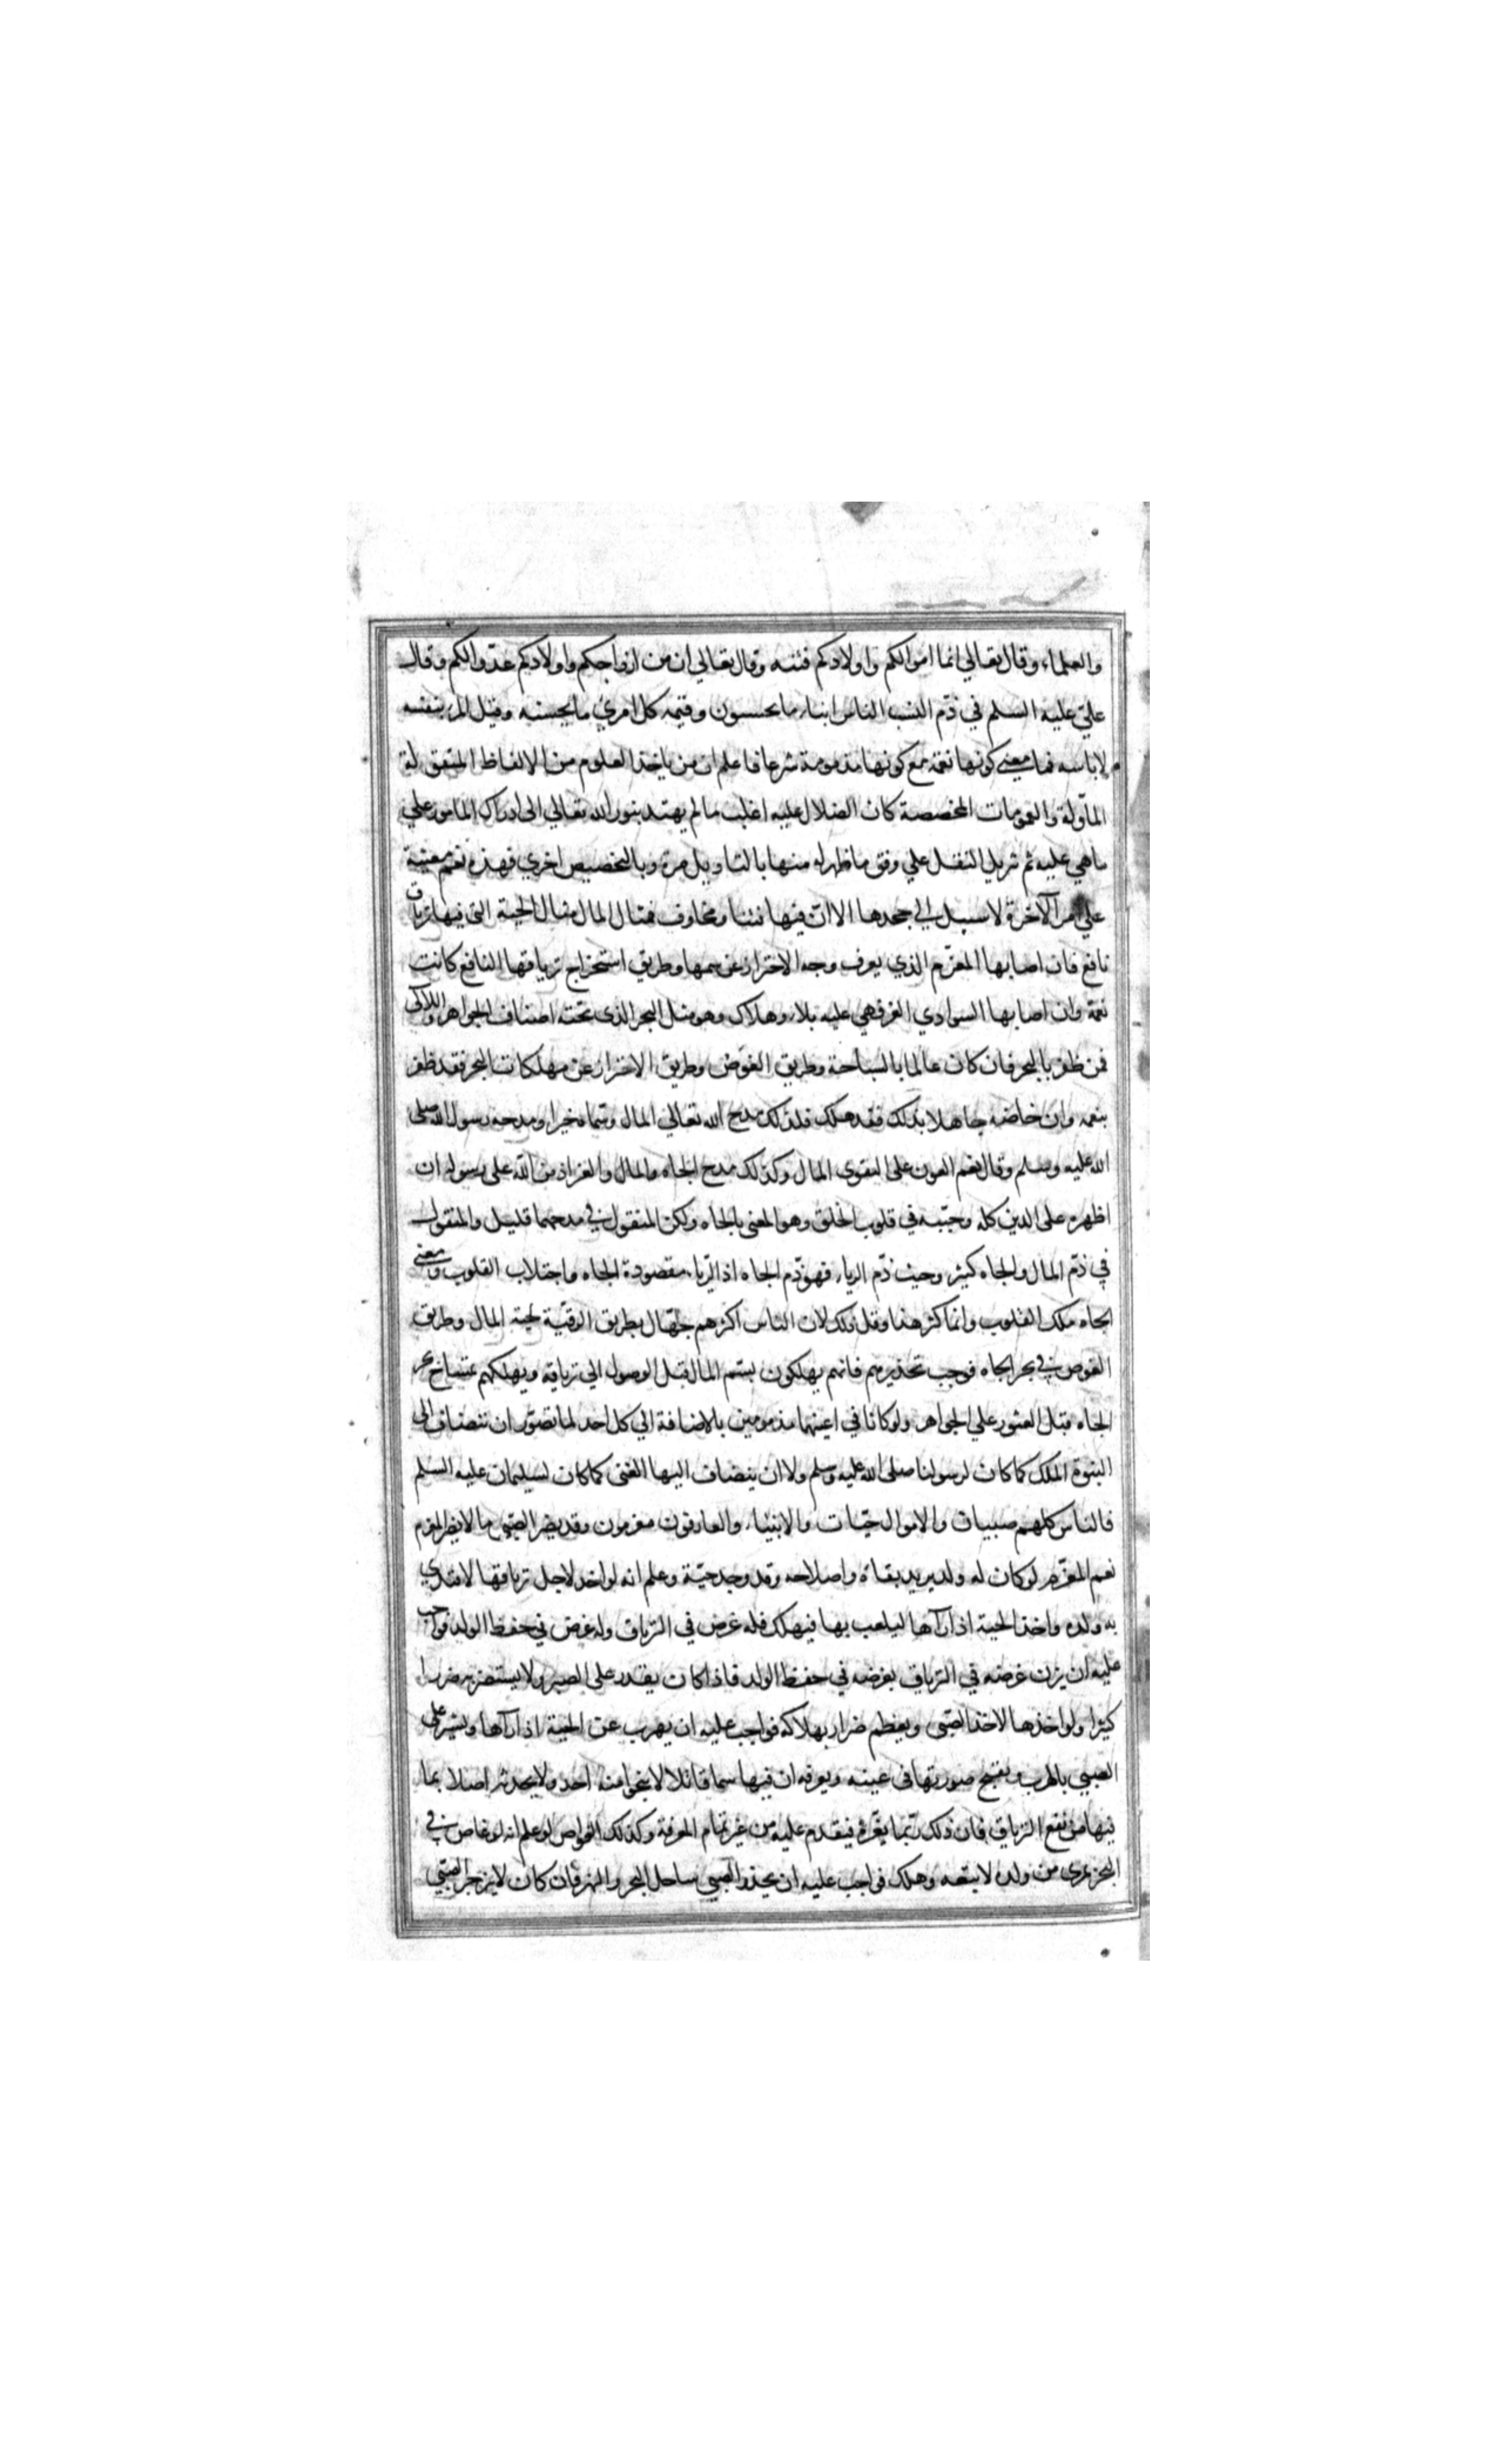 والعلماء وقال تعالى انما اموالكم واولادكم فتنه وقال تعالى ان من ازواجكم واولادكم عدوا لكم وقال
علي عليه السلم في ذم النسب الناس ابناء ما يحسنون وقيمه كل امرئ ما يحسنه وقيل المر بنفسه
لا بابيه فما معنى كونها نعمة مع كونها مذمومة شرعا فاعلم ان من ياخذ العلوم من الالفاظ المنقولة
المأولة والعمومات المخصصة كان الضلال عليه اغلب ما لم يهتد بنور الله تعالى الى ادراك الامور على
ما هي عليه ثم تنزيل النقل علي وفق ما ظهر له منها بالتاويل مرة وبالتخصيص اخري فهذه نعم معينة
علي امر الآخرة لا سبيل الي جحدها الا ان فيها فتنا ومخاوف فمثال المال مثال الحية التي فيها ترياق
نافع فان اصابها المعزم الذي يعرف وجه الاحتراز عن سمها وطريق استخراج ترياقها النافع كانت
نعمة وان اصابها السوادي الغر فهي عليه بلاء وهلاك وهو مثل البحر الذي تحته اصناف الجواهر واللالي
فمن ظفر بالبحر فان كان عالما بالسباحة وطريق الغوص وطريق الاحتراز عن مهلكات البحر فقد ظفر
بنعمه وان خاضه جاهلا بذلك فقد هلك فلذلك مدح الله تعالي المال وسماه خيرا ومدحه رسول الله صلى
الله عليه وسلم وقال نعم العون على التقوى المال وكذلك مدح الجاه والمال والعز اذ من الله على رسوله ان
اظهره على الدين كله وحببه في قلوب الخلق وهو المعنى بالجاه ولكن المنقول في مدحهما قليل والمنقول
في ذم المال والجاه كثير وحيث ذم الريا، فهو ذم الجاه اذ الريا، مقصودة الجاه واجتلاب القلوب ومعنى
الجاه ملك القلوب وانما كثر هذا وقل ذلك لان الناس اكثرهم جهال بطريق الرقية لحية المال وطريق
الغوص في بحر الجاه فوجب تحذيرهم فانهم يهلكون بسم المال قبل الوصول الي ترياقه ويهلكهم تمساح بحر
الجاه قبل العثور علي الجواهر ولو كانا في اعينهما مذمومين بالاضافة الي كل احد لما تصور ان تنضاف الى
النبوة الملك كما كان لرسولنا صلى الله عليه وسلم ولا ان ينضاف اليها الغنى كما كان لسليمان عليه السلم
فالناس كلهم صبيان والاموال حيات والانبياء والعارفون معزمون وقد يضر الصبي ما لا يضر المعزم
نعم المعزم لو كان له ولد يريد بقاه واصلاحه وقد وجد حية وعلم انه لو اخذ لاجل ترياقها لاقتدي
به ولده واخذ الحية اذا رآها ليلعب بها فيهلك فله غرض في الترياق وله غرض في حفظ الولد فواجب
عليه ان يزن غرضه في الترياق بغرضه في حفظ الولد فاذا كان يقدر على الصبر ولا يستضر به ضررا
كثيرا ولو اخذها لاخذ الصبي ويعظم ضرار بهلاكه فواجب عليه ان يهرب عن الحية اذا رآها ويشير على
الصبي بالهرب ويقبح صورتها في عينه ويعرفه ان فيها سما قاتلا لا ينجوا منه احد ولا يحدثه اصلا بما
فيها من نفع الترياق فان ذلك ربما يغره فيقدم عليه من غير تمام المعرفة وكذلك الغواص لو علم انه لو غاص في
البحر بمرى من ولده لاتبعه وهلك فواجب عليه ان يحذر الصبي ساحل البحر والنهر فان كان لا ينزجر الصبي